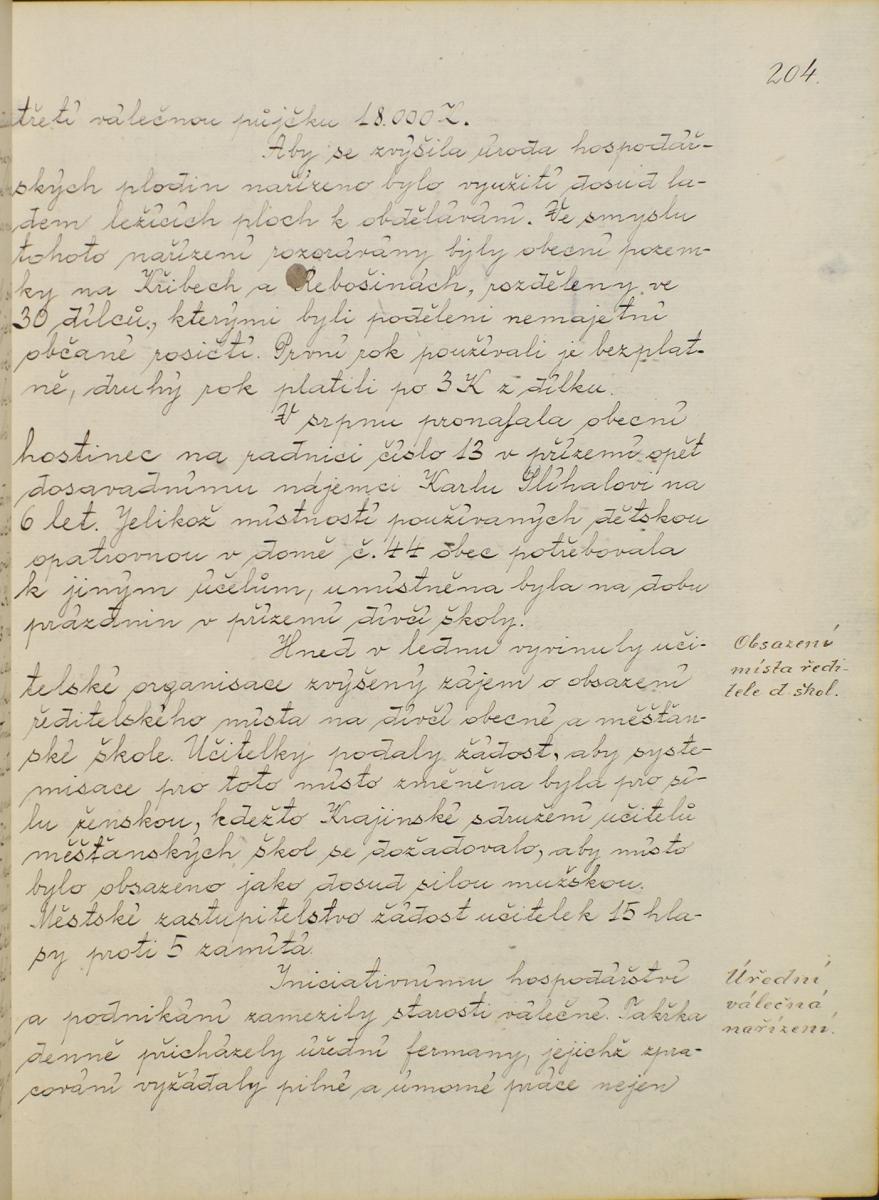 204.
třetí válečnou půjčku 18.000 K.
Aby se zvýšila úroda hospodář-
ských plodin nařízeno bylo využití dosud la-
dem ležících ploch k obdělávání. Ve smyslu
tohoto nařízení rozorávány byly obecní pozem-
ky na Křibech a Rebošinách, rozděleny ve
30 dílců, kterými byli poděleni nemajetní
občané rosičtí. První rok používali je bezplat-
ně, druhý rok platili po 3 K z dílku.
V srpnu pronajala obecní
hostinec na radnici číslo 13 v přízemí opět
dosavadnímu nájemci Karlu Slíhalovi na
6 let. Jelikož místností používaných dětskou
opatrovnou v domě č. 44 obec potřebovala
k jiným účelům, umístněna byla na dobu
prázdnin v přízemí dívčí školy.
Hned v lednu vyvinuly uči-
telské organisace zvýšený zájem o obsazení
ředitelského místa na dívčí obecné a měšťan-
ské škole. Učitelky podaly žádost, aby syste-
misace pro toto místo změněna byla pro sí-
lu ženskou, kdežto Krajinské sdružení učitelů
měšťanských škol se dožadovalo, aby místo
bylo obsazeno jako dosud silou mužskou.
Městské zastupitelstvo žádost učitelek 15 hla-
sy proti 5 zamítá.
Iniciativnímu hospodářství
a podnikání zamezily starosti válečné. Takřka
denně přicházely úřední fermany, jejichž zpra-
cování vyžádaly pilné a úmorné práce nejen
Obsazení
místa ředi-
tele d. škol.
Úřední
válečná
nařízení.